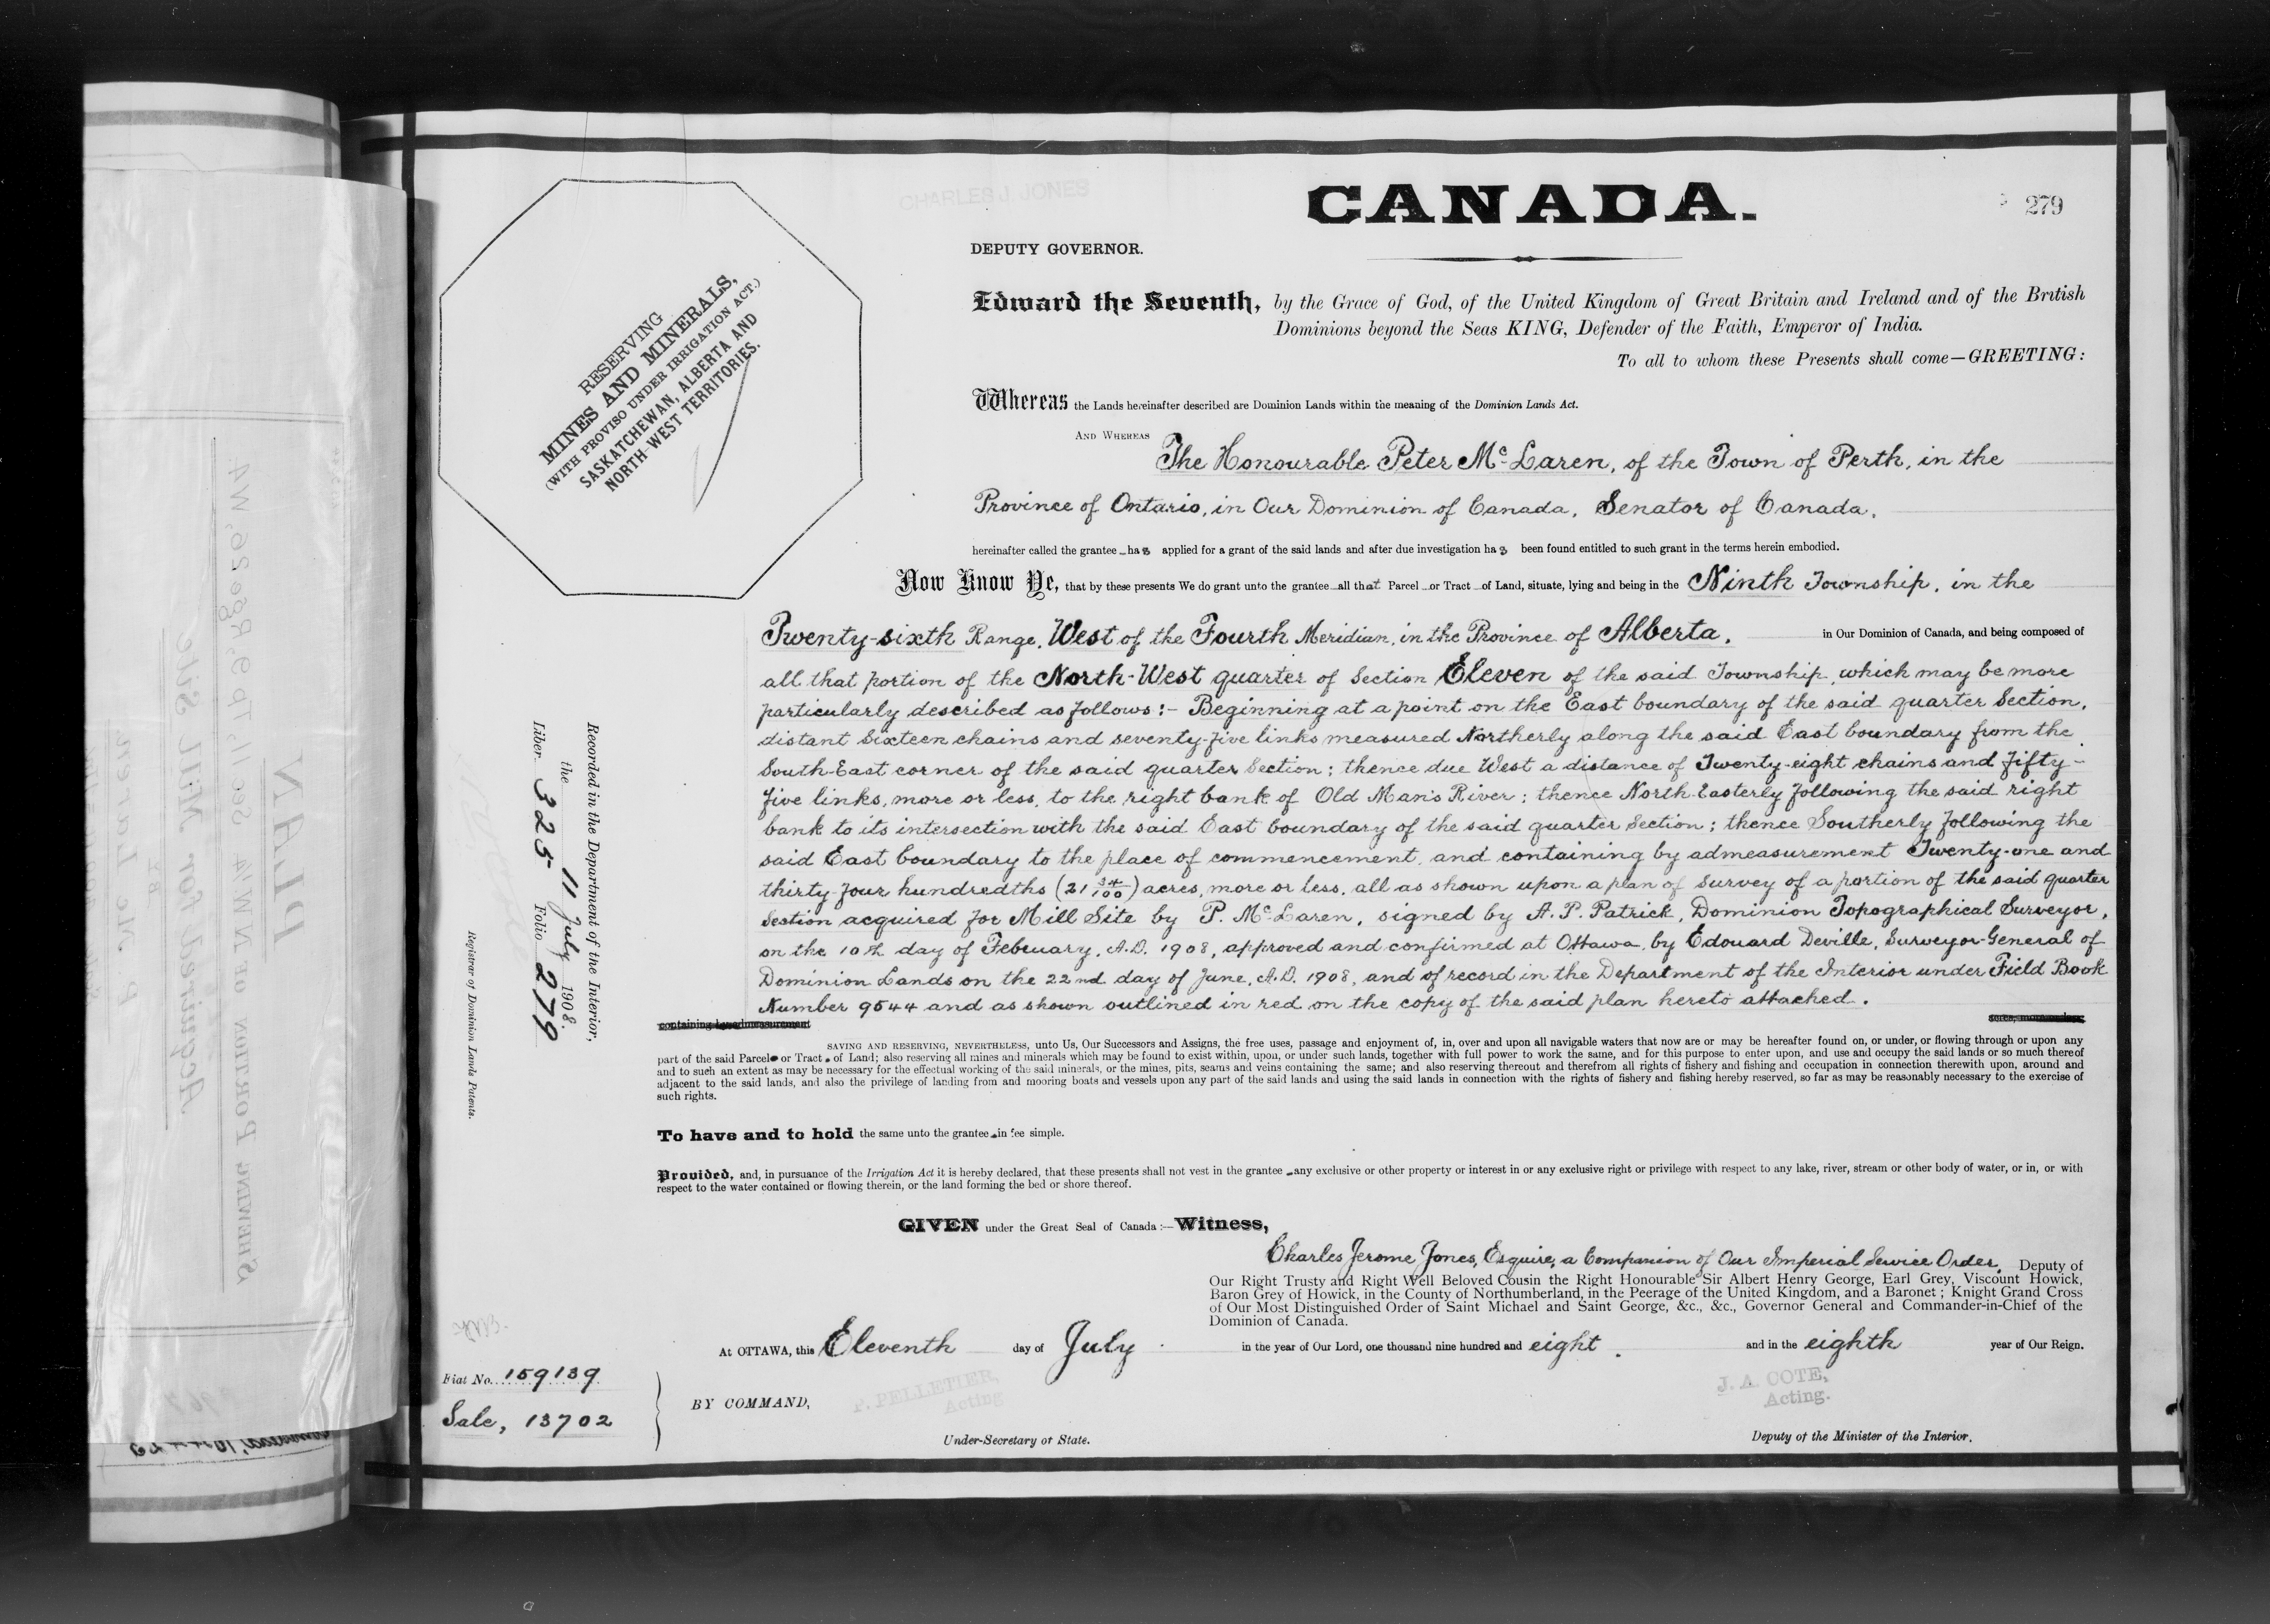 CHARLES J. JONES
CANADA.
279
DEPUTY GOVERNOR.
Edward the Seventh, by the Grace of God, of the United Kingdom of Great Britain and Ireland and of the British
Dominions beyond the Seas KING, Defender of the Faith, Emperor of India.
To all to whom these Presents shall come—GREETING:
RESERVING
MINES AND MINERALS,
(WITH PROVISO UNDER IRRIGATION ACT.)
SASKATCHEWAN, ALBERTA AND
NORTH-WEST TERRITORIES.
Whereas the Lands hereinafter described are Dominion Lands within the meaning of the Dominion Lands Act.
AND WHEREAS The Honourable Peter McLaren, of the Town of Perth, in the
Province of Ontario, in Our Dominion of Canada, Senator of Canada,
hereinafter called the grantee has applied for a grant of the said lands and after due investigation has been found entitled to such grant in the terms herein embodied.
Now Know Ye, that by these presents We do grant unto the grantee all that Parcel or Tract of Land, situate, lying and being in the Ninth Township, in the
Twenty-sixth Range, West of the Fourth Meridian, in the Province of Alberta, in Our Dominion of Canada, and being composed of
all that portion of the North-West quarter of Section Eleven of the said Township, which may be more
particularly described as follows:- Beginning at a point on the East boundary of the said quarter Section,
distant Sixteen chains and seventy-five links measured Northerly along the said East boundary from the
South-East corner of the said quarter Section; thence due West a distance of Twenty-eight chains and fifty-
five links, more or less, to the right bank of Old Man's River; thence North-Easterly following the said right
bank to its intersection with the said East boundary of the said quarter Section; thence Southerly following the
said East boundary to the place of commencement, and containing by admeasurement Twenty-one and
thirty-four hundredths (21 34/100) acres, more or less, all as shown upon a plan of Survey of a portion of the said quarter
Section acquired for Mill Site by P. McLaren, signed by A. P. Patrick, Dominion Topographical Surveyor,
on the 10th day of February, A.D. 1908, approved and confirmed at Ottawa, by Edouard Deville, Surveyor-General of
Dominion Lands on the 22nd day of June, A.D. 1908, and of record in the Department of the Interior under Field Book
Number 9544 and as shown outlined in red on the copy of the said plan hereto attached.
containing by admeasurement acres, more or less.
SAVING AND RESERVING, NEVERTHELESS, unto Us, Our Successors and Assigns, the free uses, passage and enjoyment of, in, over and upon all navigable waters that now are or may be hereafter found on, or under, or flowing through or upon any
part of the said Parcel or Tract of Land; also reserving all mines and minerals which may be found to exist within, upon, or under such lands, together with full power to work the same, and for this purpose to enter upon, and use and occupy the said lands or so much thereof
and to such an extent as may be necessary for the effectual working of the said minerals, or the mines, pits, seams and veins containing the same; and also reserving thereout and therefrom all rights of fishery and fishing and occupation in connection therewith upon, around and
adjacent to the said lands, and also the privilege of landing from and mooring boats and vessels upon any part of the said lands and using the said lands in connection with the rights of fishery and fishing hereby reserved, so far as may be reasonably necessary to the exercise of
such rights.
To have and to hold the same unto the grantee in fee simple.
Provided, and, in pursuance of the Irrigation Act it is hereby declared, that these presents shall not vest in the grantee any exclusive or other property or interest in or any exclusive right or privilege with respect to any lake, river, stream or other body of water, or in, or with
respect to the water contained or flowing therein, or the land forming the bed or shore thereof.
GIVEN under the Great Seal of Canada:—Witness,
Charles Jerome Jones, Esquire, a Companion of Our Imperial Service Order, Deputy of
Our Right Trusty and Right Well Beloved Cousin the Right Honourable Sir Albert Henry George, Earl Grey, Viscount Howick,
Baron Grey of Howick, in the County of Northumberland, in the Peerage of the United Kingdom, and a Baronet; Knight Grand Cross
of Our Most Distinguished Order of Saint Michael and Saint George, &c., &c., Governor General and Commander-in-Chief of the
Dominion of Canada.
At OTTAWA, this Eleventh day of July in the year of Our Lord, one thousand nine hundred and eight. and in the eighth year of Our Reign.
BY COMMAND,
P. PELLETIER,
Acting
Under-Secretary of State.
J. A. COTE,
Acting.
Deputy of the Minister of the Interior.
Fiat No. 159139
Sale, 13702
Recorded in the Department of the Interior,
the 11 July 1908.
Liber 325 Folio 279
Registrar of Dominion Lands Patents.
PLAN
SHEWING PORTION OF N.W.¼ Sec 11, Tp 9, Rge 26, W4
Acquired for Mill Site
BY
P. McLaren